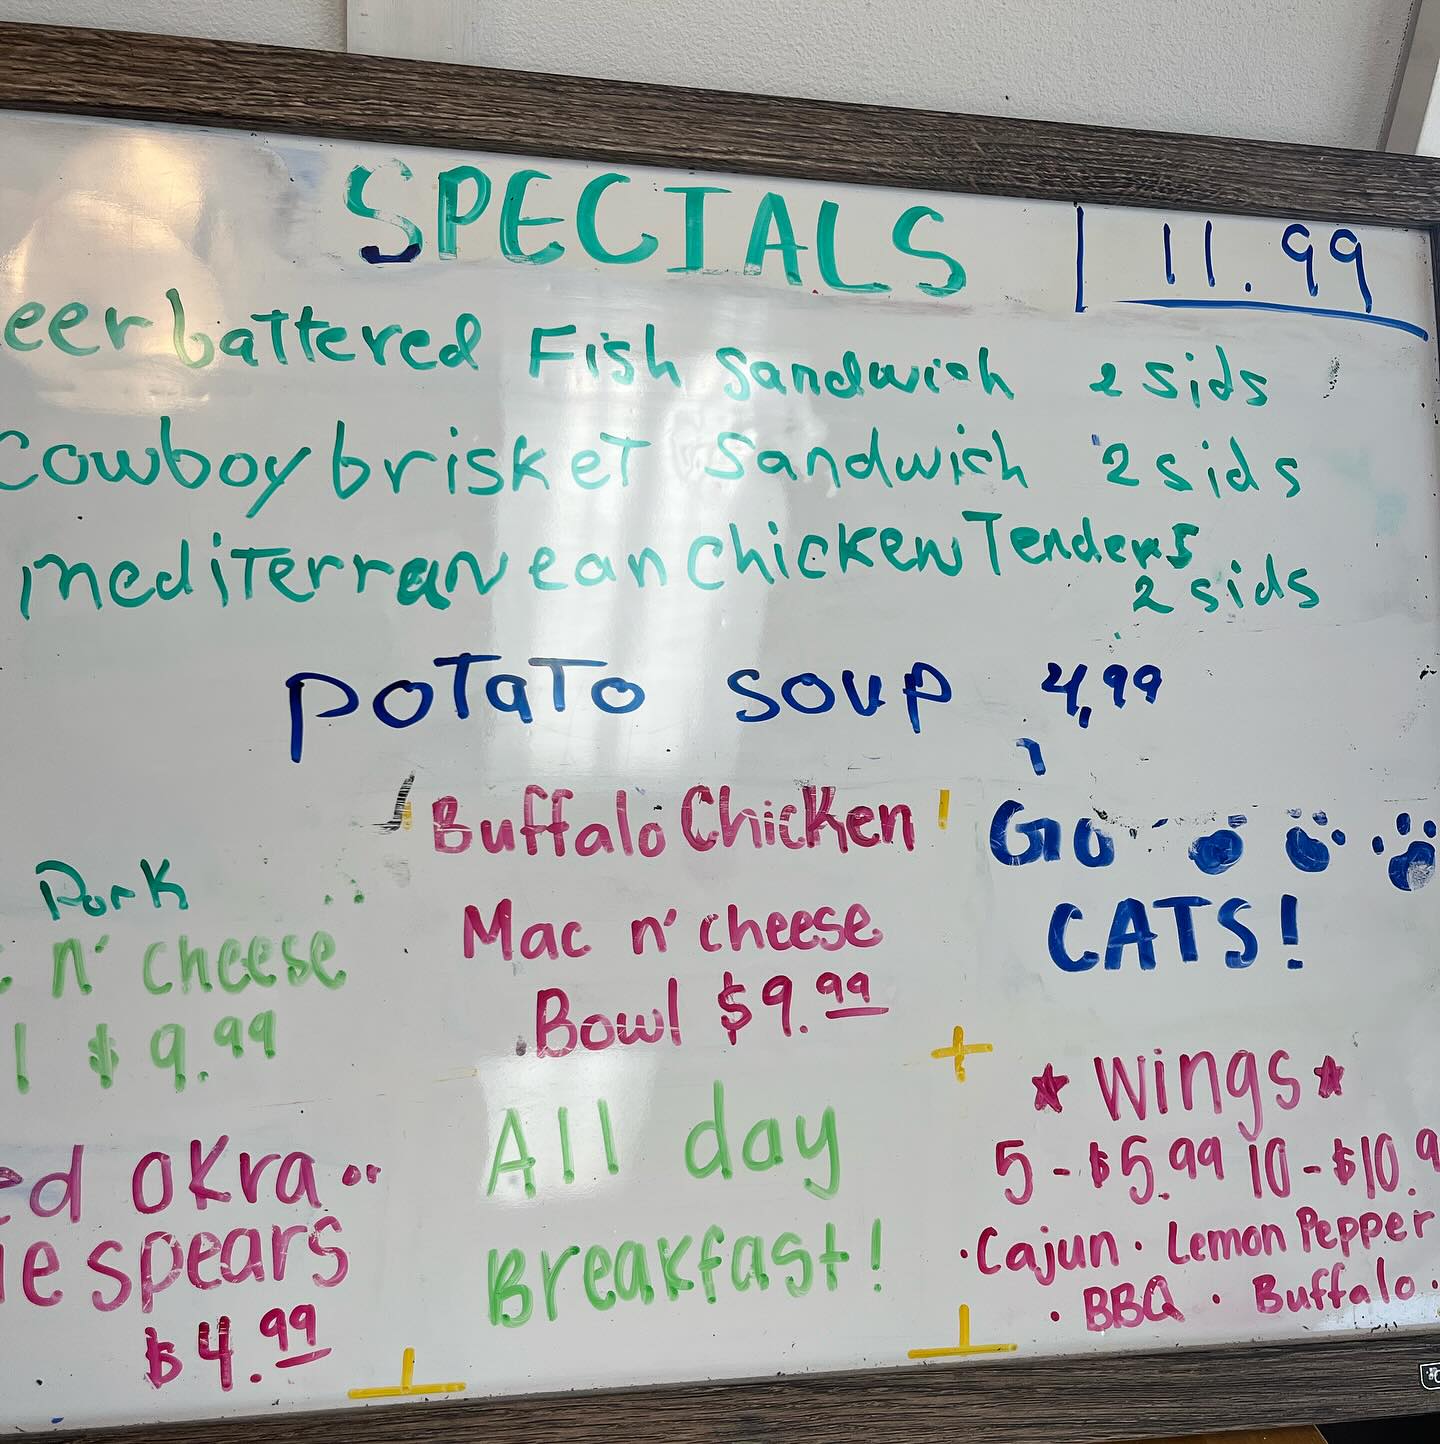 SPECIALS 11.99
eer battered Fish Sandwich 2 sids
Cowboy brisket Sandwich 2 sids
mediterranean chicken Tenders
2 sids
potato soup 4,99
Buffalo Chicken
Mac n' cheese
Bowl $9.99
Go
CATS!
Pork
n' cheese
l $9.99
ed okra or
le spears
$4.99
All day
Breakfast!
Wings
5-$5.99 10-$10.9
·Cajun · Lemon Pepper
· BBQ · Buffalo ·